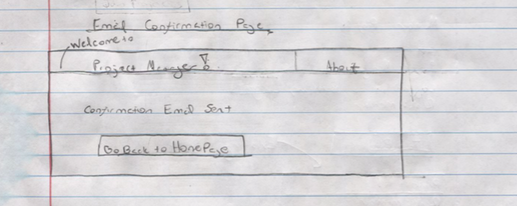 Email Confirmation Page
Welcome to
Project Manager! About
Confirmation Email Sent
Go Back to HomePage